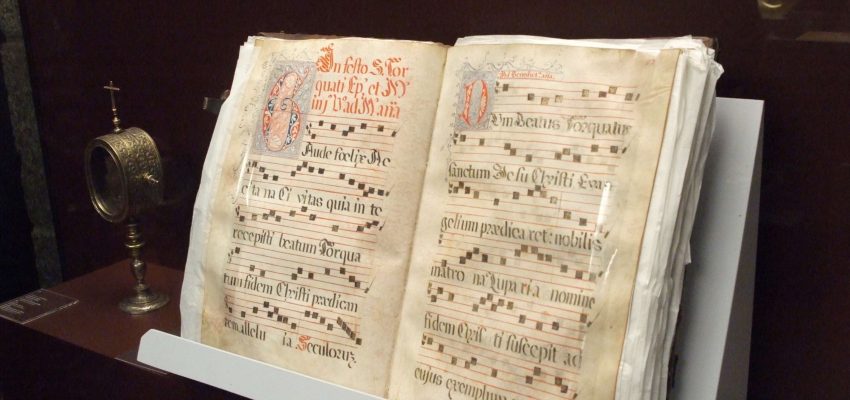 In festo S. Tor
quati Ep. et M
in j. Vad Magña
Gaude foelix Ac
citana Civitas quia in te
recepisti beatum Torqua
tum fidem Christi praedican
tem allelu ia Seculoruz
Ad Benedict. aña.
Dum Beatus Torquatus
sanctum Dei Iesu Christi Evan
gelium praedica ret: nobilis
matro na Luparia nomine
fidem Chris ti suscepit ad
cujus exemplum